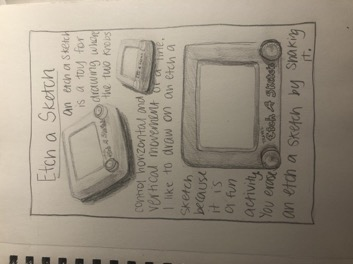 Etch a Sketch
an etch a sketch
is a toy for
drawing where
the two knobs
control horizontal and
vertical movement of a line.
I like to draw on an etch a
sketch
because
it is
a fun
activity
You erase
an etch a sketch by shaking
it.
Etch A Sketch